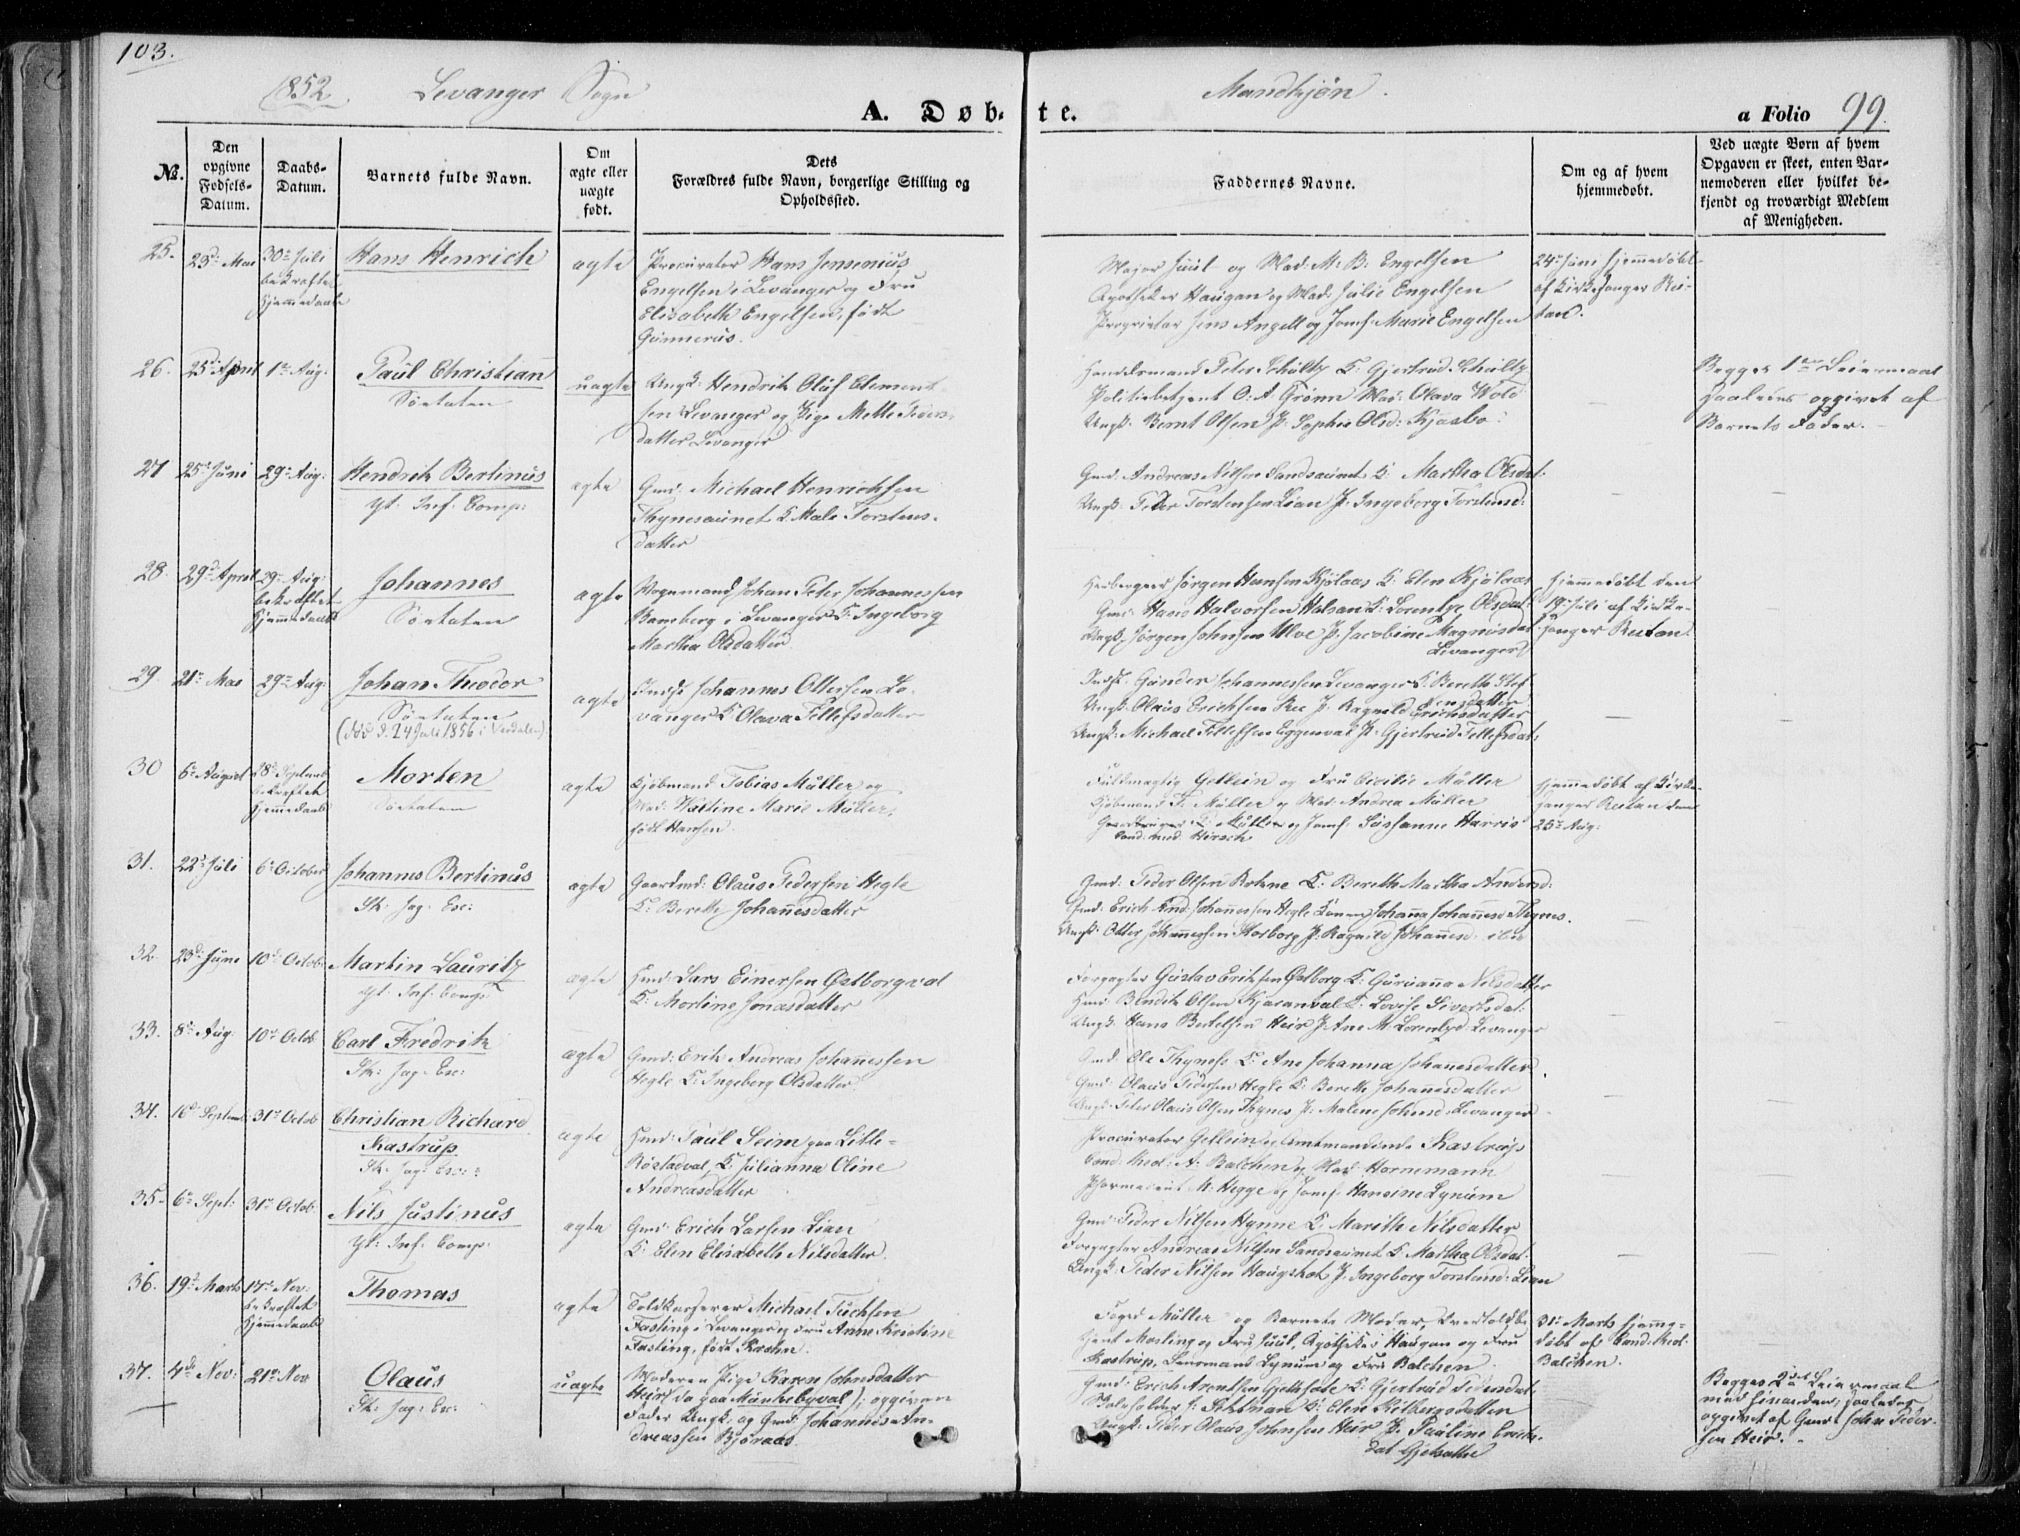 103.
1852 Levanger Sogn
A. Døb-
te.
Mandkjøn.
a Folio 99.
No.
Den opgivne Fødsels-Datum.
Daabs-Datum.
Barnets fulde Navn.
Om ægte eller uægte født.
Dets Forældres fulde Navn, borgerlige Stilling og Opholdssted.
Faddernes Navne.
Om og af hvem hjemmedøbt.
Ved uægte Børn af hvem Opgaven er skeet, enten Barnemoderen eller hvilket bekjendt og troværdigt Medlem af Menigheden.
25. 23de Mai 30te Juli bekræftet Hjemmedaab
Hans Henrich
ægte
Procurator Hans Jensenius
Engelsen i Levanger og Fru
Elisabeth Engelsen, født
Gunnerus.
Major Juul og Mad: M: B: Engelsen
Apotheker Haugan og Mad: Julie Engelsen
Proprietær Jens Angell og Jomf: Marie Engelsen
24de Juni hjemmedøbt
af Kirkesanger Rei-
tan.
26. 25de April 1te Aug:
Paul Christian
Søetaten
uægte
Ungk: Hendrik Oluf Clement
sen Levanger og Pige Mette Peders-
datter Levanger
Handelsmand Peter Schultz K: Gjertrud Schultz
Politiebetjent O: A Grønn Mad: Olava Wold
Ungk: Bernt Olsen P: Sophie Olsd: Kjæsbo:
Begges 1ste Leiermaal
saaledes opgivet af
Barnets Fader.
27 25de Juni 29de Aug:
Hendrik Bertinus
Yt. Inf. Comp:
ægte
Gmd: Michael Henrichsen
Thynesaunet K Male Torstens-
datter
Gmd: Andreas Nilsen Sandsaunet K: Martha Olsdat:
Ungk: Peder Torstensen Lian P: Ingeborg Torstensd:
28. 29de April 29de Aug: bekræftet Hjemmedaab
Johannes
Søetaten
ægte
Vognmand Johan Peter Johannessen
Bamberg i Levanger K: Ingeborg
Martha Olsdatter
Herbergeer Jørgen Hansen Kjølaas K: Elen Kjølaas
Gmd: Havor Halvorsen Halsan K: Lorentze Olsdat:
Ungk: Jørgen Johnsen Ulve P: Jacobine Magnusdat
Levanger
Hjemmedøbt den
19de Juli af Kirke-
sanger Reitan.
29. 21de Mai 29de Aug:
Johan Theodor
Søetaten
(død d. 24 Juli 1856 i Verdalen)
ægte
Indst: Johannes Ottersen Le-
vanger K Olava Tellefsdatter
Indst: Gunder Johannessen Levanger K: Berethe Stef
fensdatter
Ungk: Olaus Erichsen Ree P: Ragnild Erichsdatter
Ungk: Michael Tellefsen Eggenval P: Gjertrud Tellefsdat:
30 6te August 28de Septemb bekræftet Hjemmedaab
Morten
Søetaten
ægte
Kjøbmand Tobias Müller og
Mad: Martine Marie Müller,
født Hansen.
Fuldmægtig Gellein og Fru Cicilie Müller
Kjøbmand F: Müller og Mad: Andrea Müller
Müller og Jomf: Susanne Harris
Cand. med. Hirsch
Hjemmedøbt af Kirke-
sanger Reitan den
25de Aug:
31. 22de Juli 6te October
Johannes Bertinus
Sk: Jæg: Esc:
ægte
Gaardmd: Olaus Pedersen Hegle
K: Berethe Johañesdatter
Gmd: Peder Olsen Rohne K: Bereth Martha Andersd:
Gmd: Erich And: Johañessen Hegle Konen Johaña Johañesd Thynes.
Ungk: Otter Johañessen Korborg P: Ragnild Johañesd: ibd:
32. 23de Juni 10de Octob:
Martin Lauritz
Yt: Inf: Comp:
ægte
Hmd: Lars Einersen Østborgval
K: Mortine Jonasdatter
Forpagter Gustav Eriksen Østborg K: Guruaña Nilsdatter
Hmd: Bendik Olsen Kjæranval K: Lovise Sivertsdat:
Ungk: Hans Bertelsen Heir P: Ane M: Lorentzd: Levanger
33. 8de Aug: 10de Octob
Carl Fredrik
Sk: Jæg: Esc:
ægte
Gmd: Erik Andreas Johañessen
Hegle K: Ingeborg Olsdatter
Gmd: Ole Thynes K: Ane Johanna Johanesdatter
Gmd: Olaus Pedersen Hegle K: Berethe Johanesdatter
Ungk: Peter Olaus Olsen Thynes P: Malene Johnsd: Levanger
34. 16de Septemb: 31te Octob
Christian Richard
Kastrup
Sk: Jæg: Esc:
ægte
Hmd: Paul Seim paa Litle-
Røstadval, K: Julianna Oline
Andreasdatter
Procurator Gellein og Amtmandinde Kastrup
Cand. Med: A: Balchen og Mad: Hornemann
Pharmaceut M: Hegge og Jomf: Hansine Lynum
35. 6te Sept: 31te Octob
Nils Justinus
Yt: Inf: Comp:
ægte
Gmd: Erich Larsen Lian
K: Elen Elisabeth Nilsdatter
Gmd: Peder Nilsen Hynne K: Marith Nilsdatter
Forpagter Andreas Nilsen Sandsaunet K: Martha Olsdat:
Ungk: Peder Nilsen Haugskot P: Ingeborg Torstensd: Lian
36. 19de Marts 14de Nov: bekræftet Hjemmedaab
Thomas
ægte
Toldkasserer Michael Tuchsen
Fasting i Levanger og Fru Anne Kristine
Fasting, født
Foged Müller og Barnets Moder, Overtoldbe
tjent Mosling og Fru Juul, Apotheker Haugan og Fru
Kastrup, Lensmand Lynum og Fru Balchen
31te Marts hjemme-
døbt af Cand. Med:
Balchen.
37. 4de Nov: 21de Nov
Olaus
Sk: Jæg: Esc:
uægte
Moderen Pige Karen Johnsdatter
Heir (da paa Munkebyval); opgiven
Fader Ungk: og Gmd: Johannes An-
dreassen Bjøraas
Gmd: Erich Arentsen Gjeltsate K: Gjertrud Pedersdat,
K: Elen Kilbergsdatter
Ungk: Peder Olaus Johnsen Heir P: Pauline Erichs-
dat Gjelsatte
Begges 2det Leiermaal
med hinanden; saaledes
opgivet af Gmd: John Peder-
sen Heir.